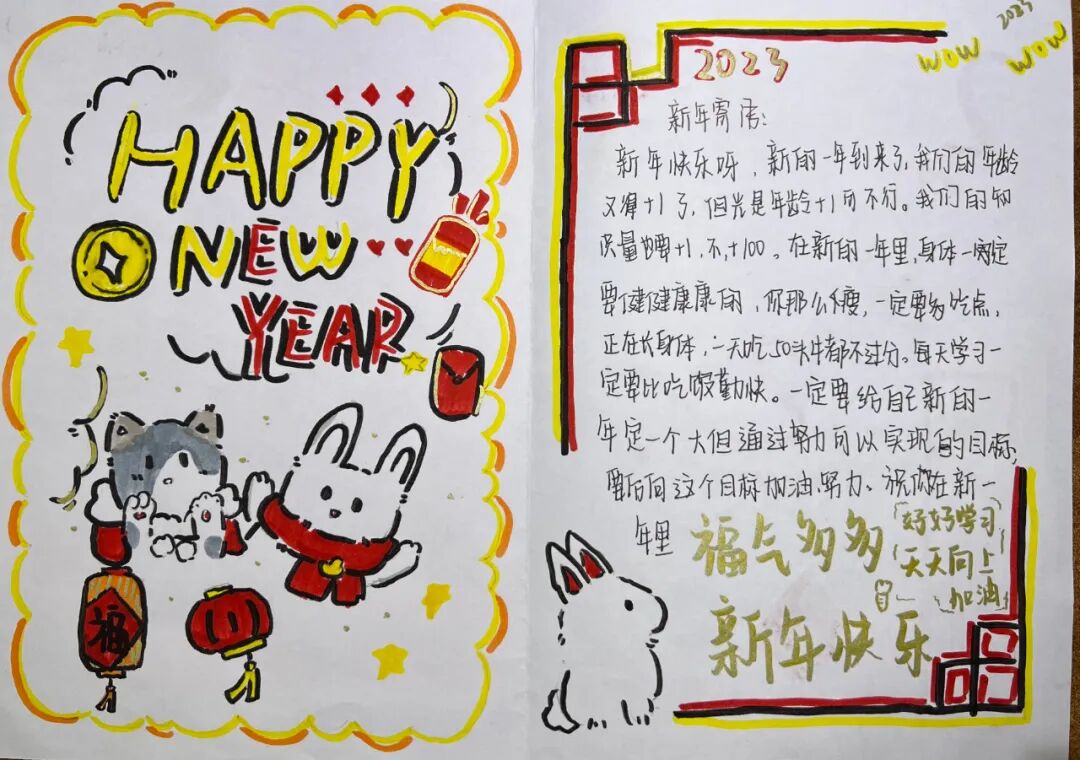 HAPPY
NEW
YEAR
福
2023
WOW
WOW
2023
新年寄语:
新年快乐呀，新的一年到来了,我们的年龄
又得+1了，但光是年龄+1可不行。我们的知
识量也要+1,不,+100。在新的一年里,身体一定
要健健康康的，你那么瘦，一定要多吃点,
正在长身体，一天吃50头牛都不过分。每天学习一
定要比吃饭勤快。一定要给自己新的一
年定一个大但通过努力可以实现的目标,
要向这个目标加油努力、祝你在新一
年里
福气多多
好好学习
天天向上
加油
新年快乐